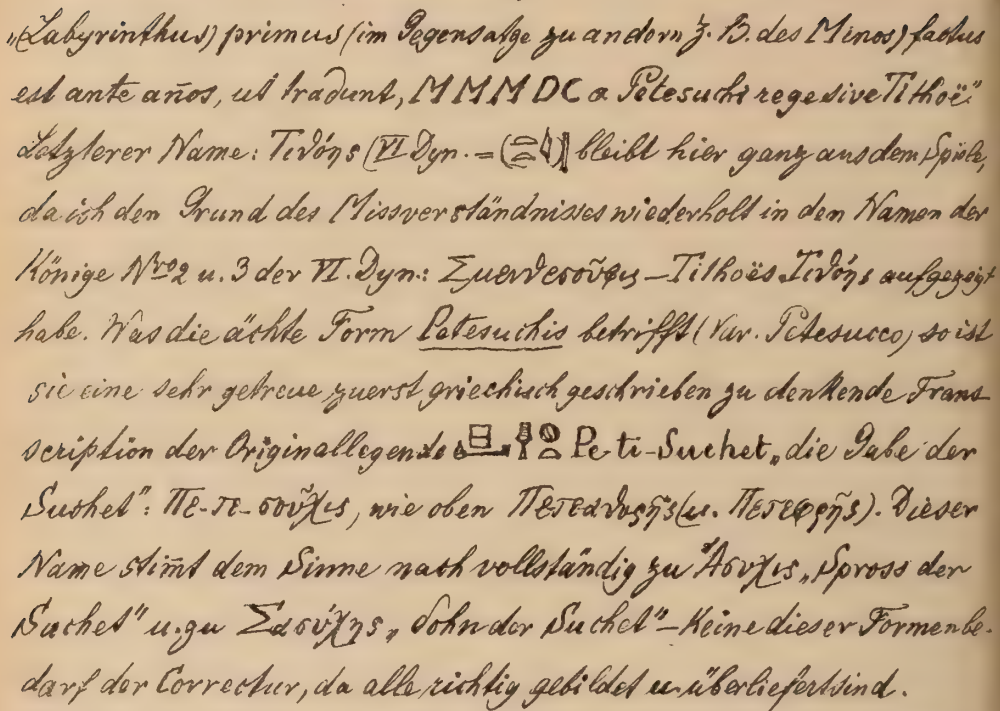 „(Labyrinthus) primus (im Gegensatze zu andern z. B. des Minos) factus
est ante an̄os, ut tradunt, MMMDC a Petesuchi rege sive Tithoë."
Letzterer Name: Τιϑόης (VI Dyn. = bleibt hier ganz aus dem Spiele,
da ich den Grund des Missverständnisses wiederholt in den Namen der
Könige Nro 2 u. 3 der VI. Dyn.: Σμενϑεσοῦφις – Tithoës Τιϑόης aufgezeigt
habe. Was die ächte Form Petesuchis betrifft (Var. Petesucco) so ist
sie eine sehr getreue zuerst griechisch geschrieben zu denkende Trans
scription der Originallegende Pe-ti-Suchet „die Gabe der
Suchet": Πε-τε-σοῦχις, wie oben (u. Πετεφρῆς). Dieser
Name stim̄t dem Sinne nach vollständig zu Ἄσυχις „Spross der
Suchet" u. zu Σασύχης „Sohn der Suchet" – Keine dieser Formen be-
darf der Correctur, da alle richtig gebildet u. überliefert sind.